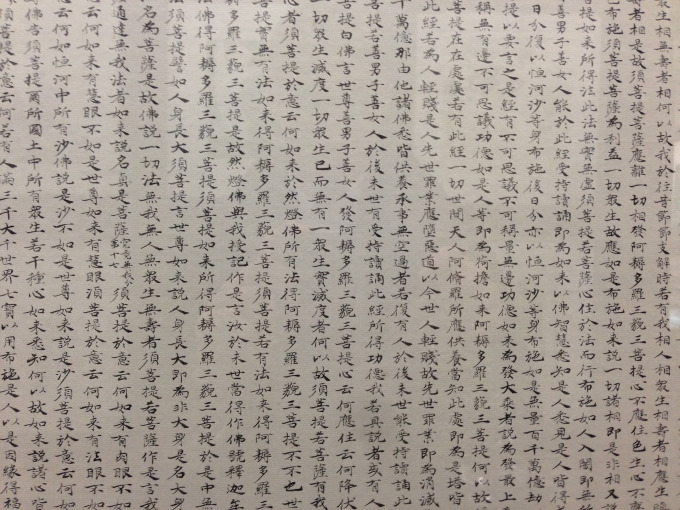 眾生相無壽者相何以故我於往昔節節支解時若有我相人相眾生相壽者相應生瞋
壽者相是故須菩提菩薩應離一切相發阿耨多羅三藐三菩提心不應住色生心不應
色布施須菩提菩薩為利益一切眾生故應如是布施如來說一切諸相即是非相又說
菩提如來所得法此法無實無虛須菩提若菩薩心住於法而行布施如人入闇即無所
善男子善女人能於此經受持讀誦即為如來以佛智慧悉知是人悉見是人皆得
日分復以恒河沙等身布施後日分亦以恒河沙等身布施如是無量百千萬億劫
提以要言之是經有不可思議不可稱量無邊功德如來為發大乘者說為發最上
稱無有邊不可思議功德如是人等即為荷擔如來阿耨多羅三藐三菩提何以故
提在在處處若有此經一切世間天人阿脩羅所應供養當知此處即為是塔皆
此經若為人輕賤是人先世罪業應墮惡道以今世人輕賤故先世罪業即為消滅
千萬億那由他諸佛悉皆供養承事無空過者若復有人於後末世能受持讀誦此
若善男子善女人於後末世有受持讀誦此經所得功德我若具說者或有人
提白佛言世尊善男子善女人發阿耨多羅三藐三菩提心云何應住云何降伏
一切眾生滅度一切眾生已而無有一眾生實滅度者何以故須菩提若菩薩有我
心者須菩提於意云何如來於然燈佛所有法得阿耨多羅三藐三菩提不不也世
菩提實無有法如來得阿耨多羅三藐三菩提須菩提若有法如來得阿耨多羅三
多羅三藐三菩提是故然燈佛與我授記作是言汝於來世當得作佛號釋迦牟
法佛得阿耨多羅三藐三菩提須菩提如來所得阿耨多羅三藐三菩提於是中無
須菩提譬如人身長大須菩提言世尊如來說人身長大即為非大身是名大身
名為菩薩是故佛說一切法無我無人無眾生無壽者須菩提若菩薩作是言我
通達無我法者如來說名真是菩薩 究竟無我分第十七 須菩提於意云何如來有肉眼不如
云何如來有慧眼不如是世尊如來有慧眼須菩提於意云何如來有法眼不如
云何如恒河中所有沙佛說是沙不如是世尊如來說是沙須菩提於意云何如
佛告須菩提爾所國土中所有眾生若干種心如來悉知何以故如來說諸心皆
須菩提於意云何若有人滿三千大千世界七寶以用布施是人以是因緣得福